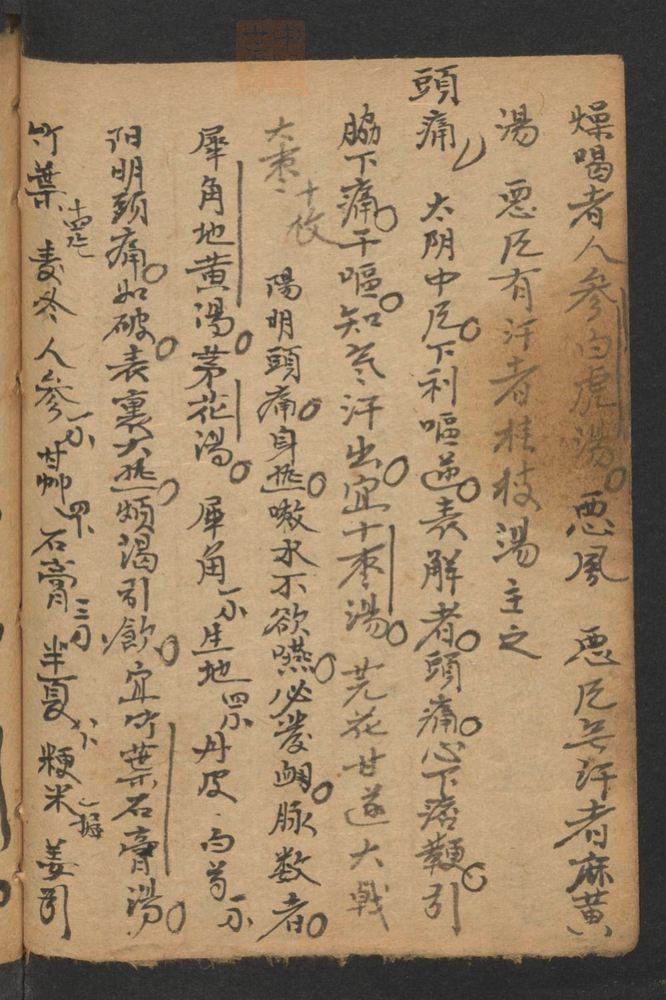 燥喝者人参白虎湯。悪風 悪尺無汗者麻黄
湯 悪尺有汗者桂枝湯主之
頭痛 太阴中尺。下利嘔逆。表解者。頭痛。心下痞鞕。引
脇下痛。干嘔。知气汗出。宜十枣湯。芫花甘遂大戟
大枣十枚 陽明頭痛。身热。嗽水不欲嚥。必發衄。脉数者。
犀角地黄湯。茅花湯。犀角一小生地四小丹皮 白芍一小
阳明頭痛。如破。表裏大热。烦渴引飲。宜竹葉石膏湯。
竹葉 麦冬人参一小甘艸四卜石膏三刃半夏 粳米一撮姜引